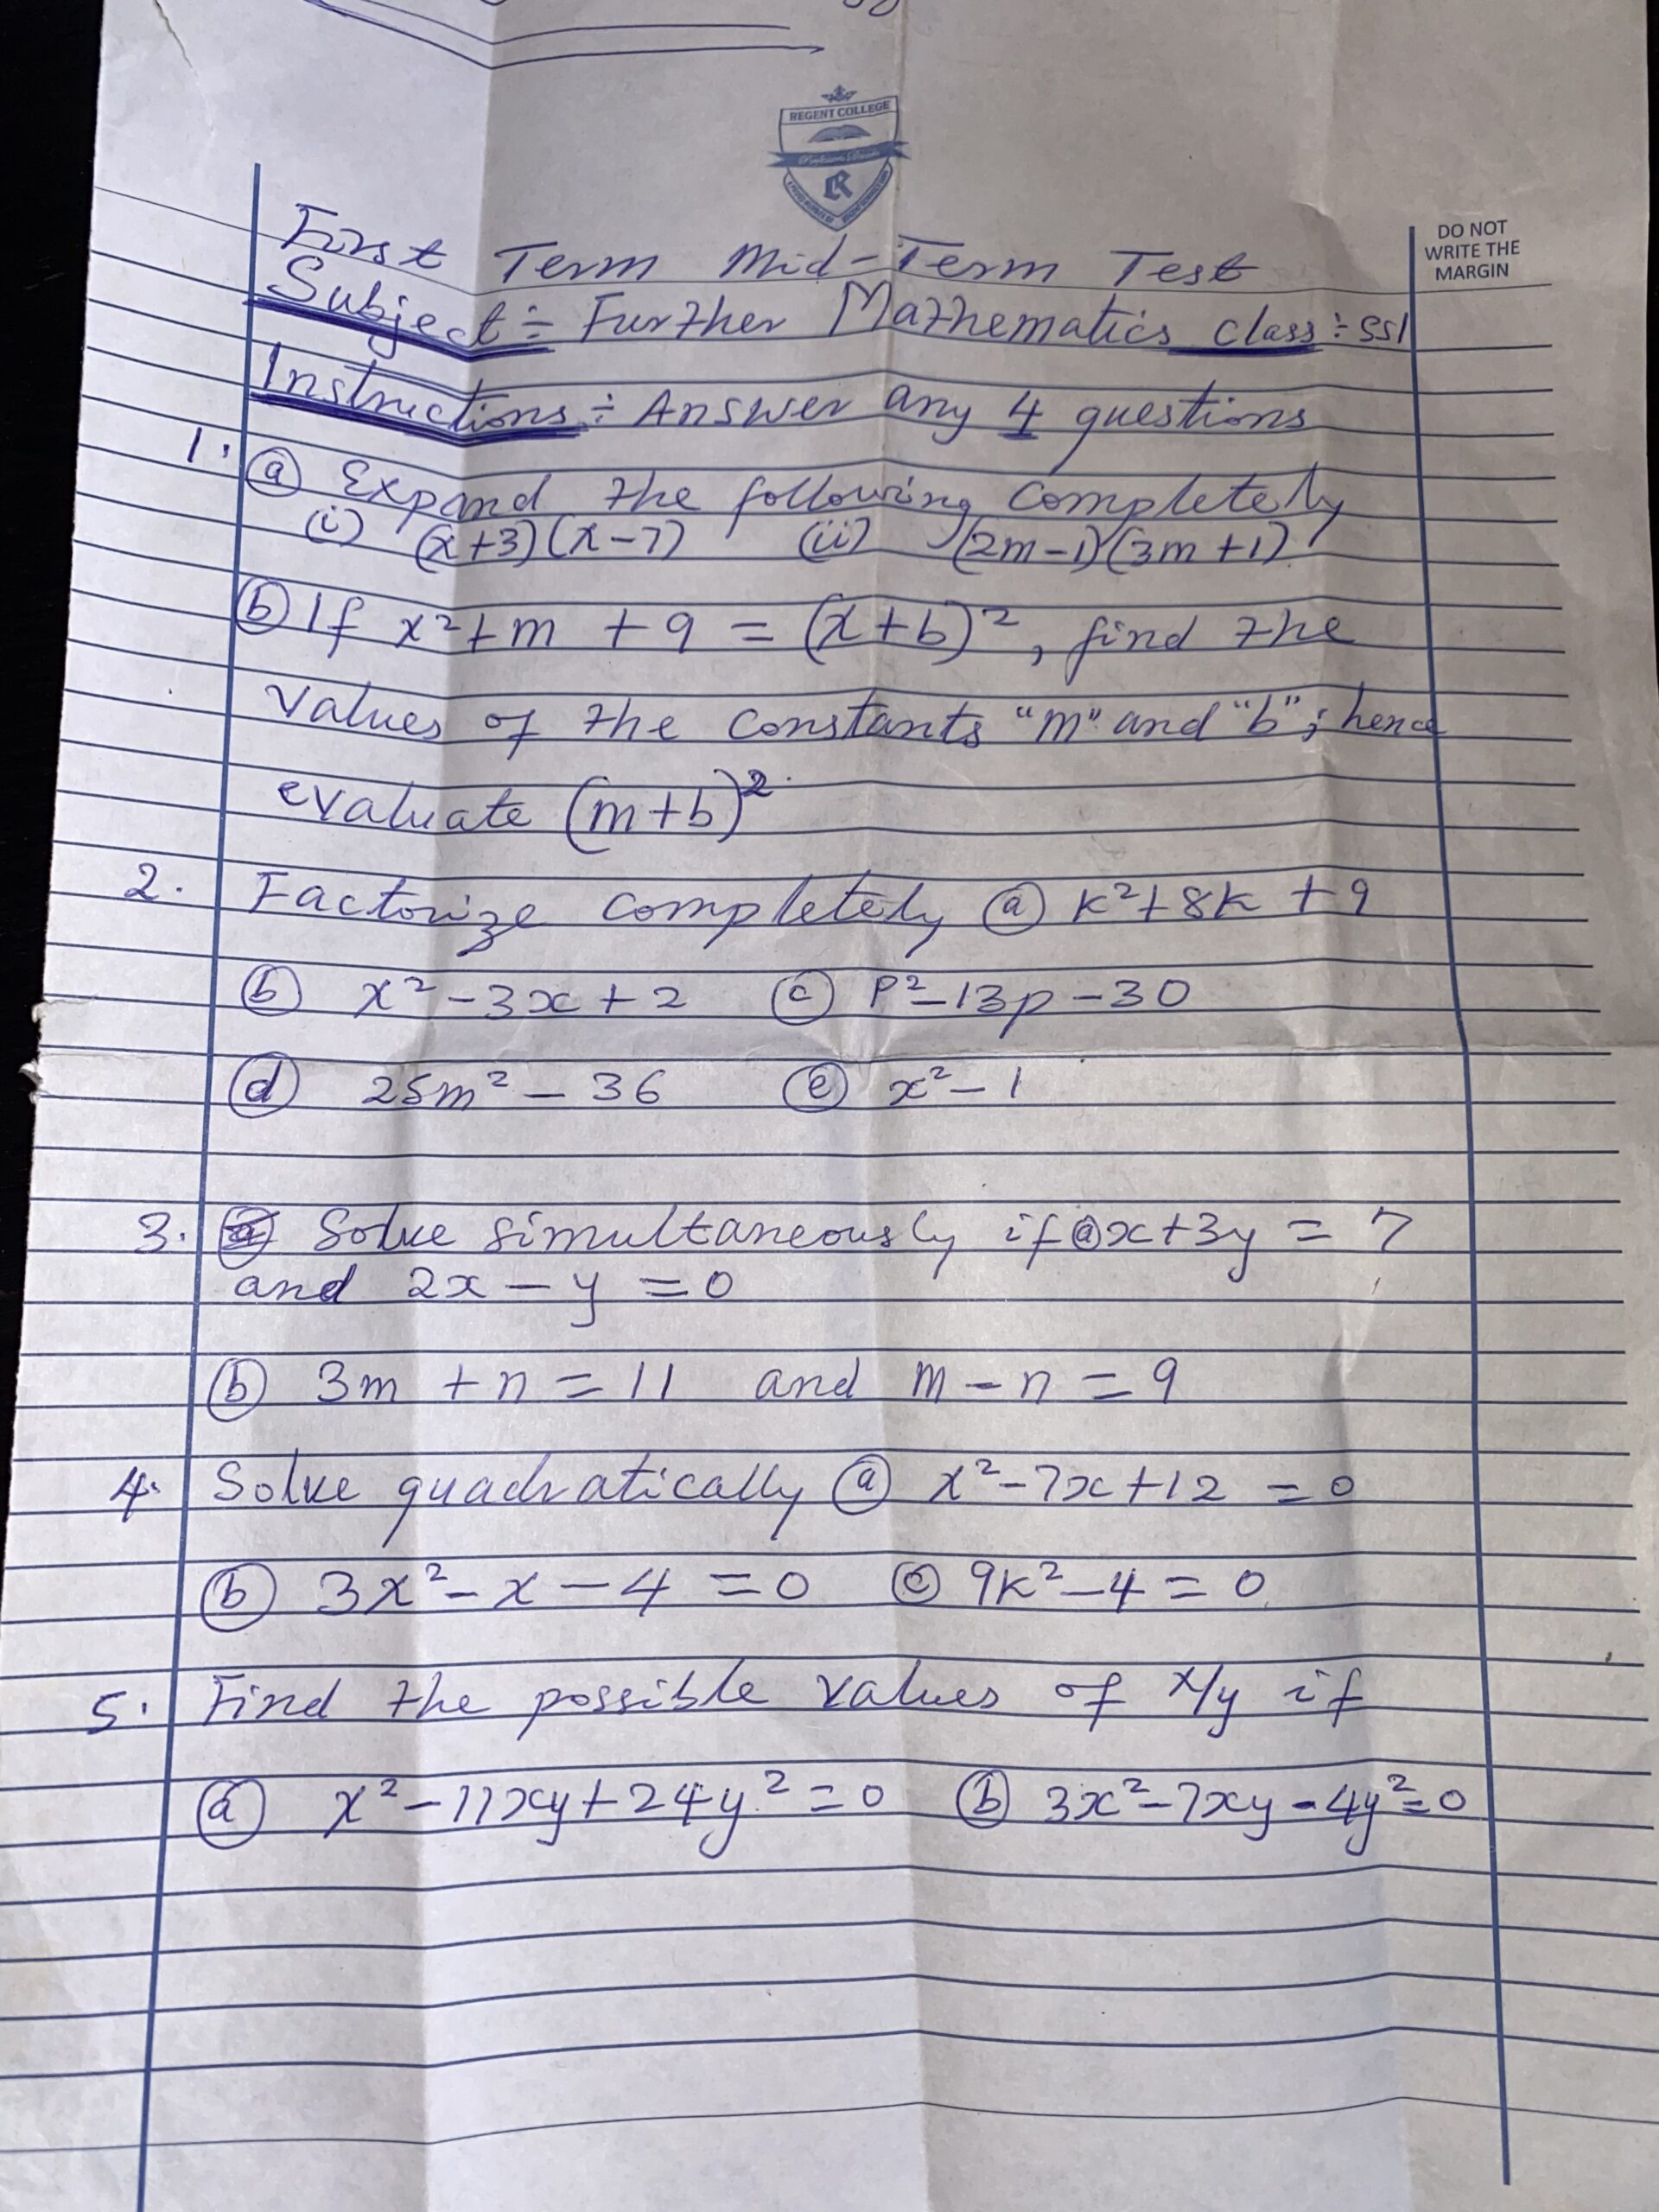 REGENT COLLEGE
DO NOT
WRITE THE
MARGIN
First Term Mid-Term Test
Subject÷ Further Mathematics class÷ SS1
Instructions÷ Answer any 4 questions
1. (a) Expand the following completely
(i) (x+3)(x-7) (ii) (2m-1)(3m+1)
(b) If x²+m +9 = (x+b)², find the
values of the constants "m" and "b"; hence
evaluate (m+b)²
2. Factorize completely (a) k²+8k +9
(b) x²-3x+2 (c) P²-13p-30
(d) 25m² - 36 (e) x²-1
3. Solve simultaneously if (a) x+3y = 7
and 2x - y = 0
(b) 3m + n = 11 and m - n = 9
4. Solve quadratically (a) x²-7x+12 = 0
(b) 3x²-x-4 = 0 (c) 9k²-4 = 0
5. Find the possible values of x/y if
(a) x²-11xy+24y² = 0 (b) 3x²-7xy-4y²=0